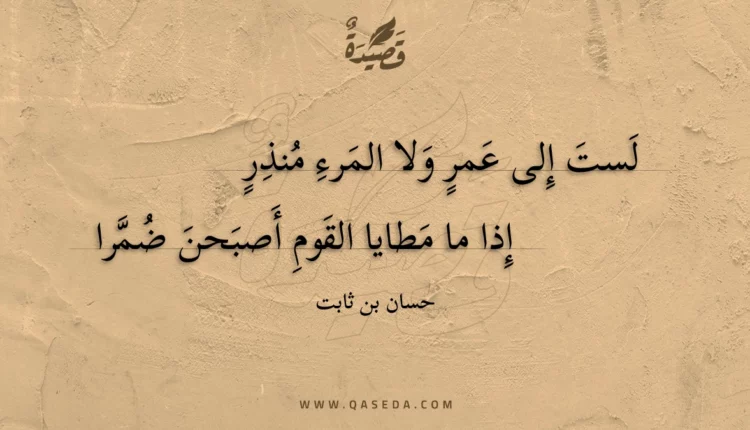 قَصِيدَةٌ
لَستَ إِلى عَمرٍ وَلا المَرءِ مُنذِرٍ
إِذا ما مَطايا القَومِ أَصبَحنَ ضُمَّرا
حسان بن ثابت
WWW.QASEDA.COM